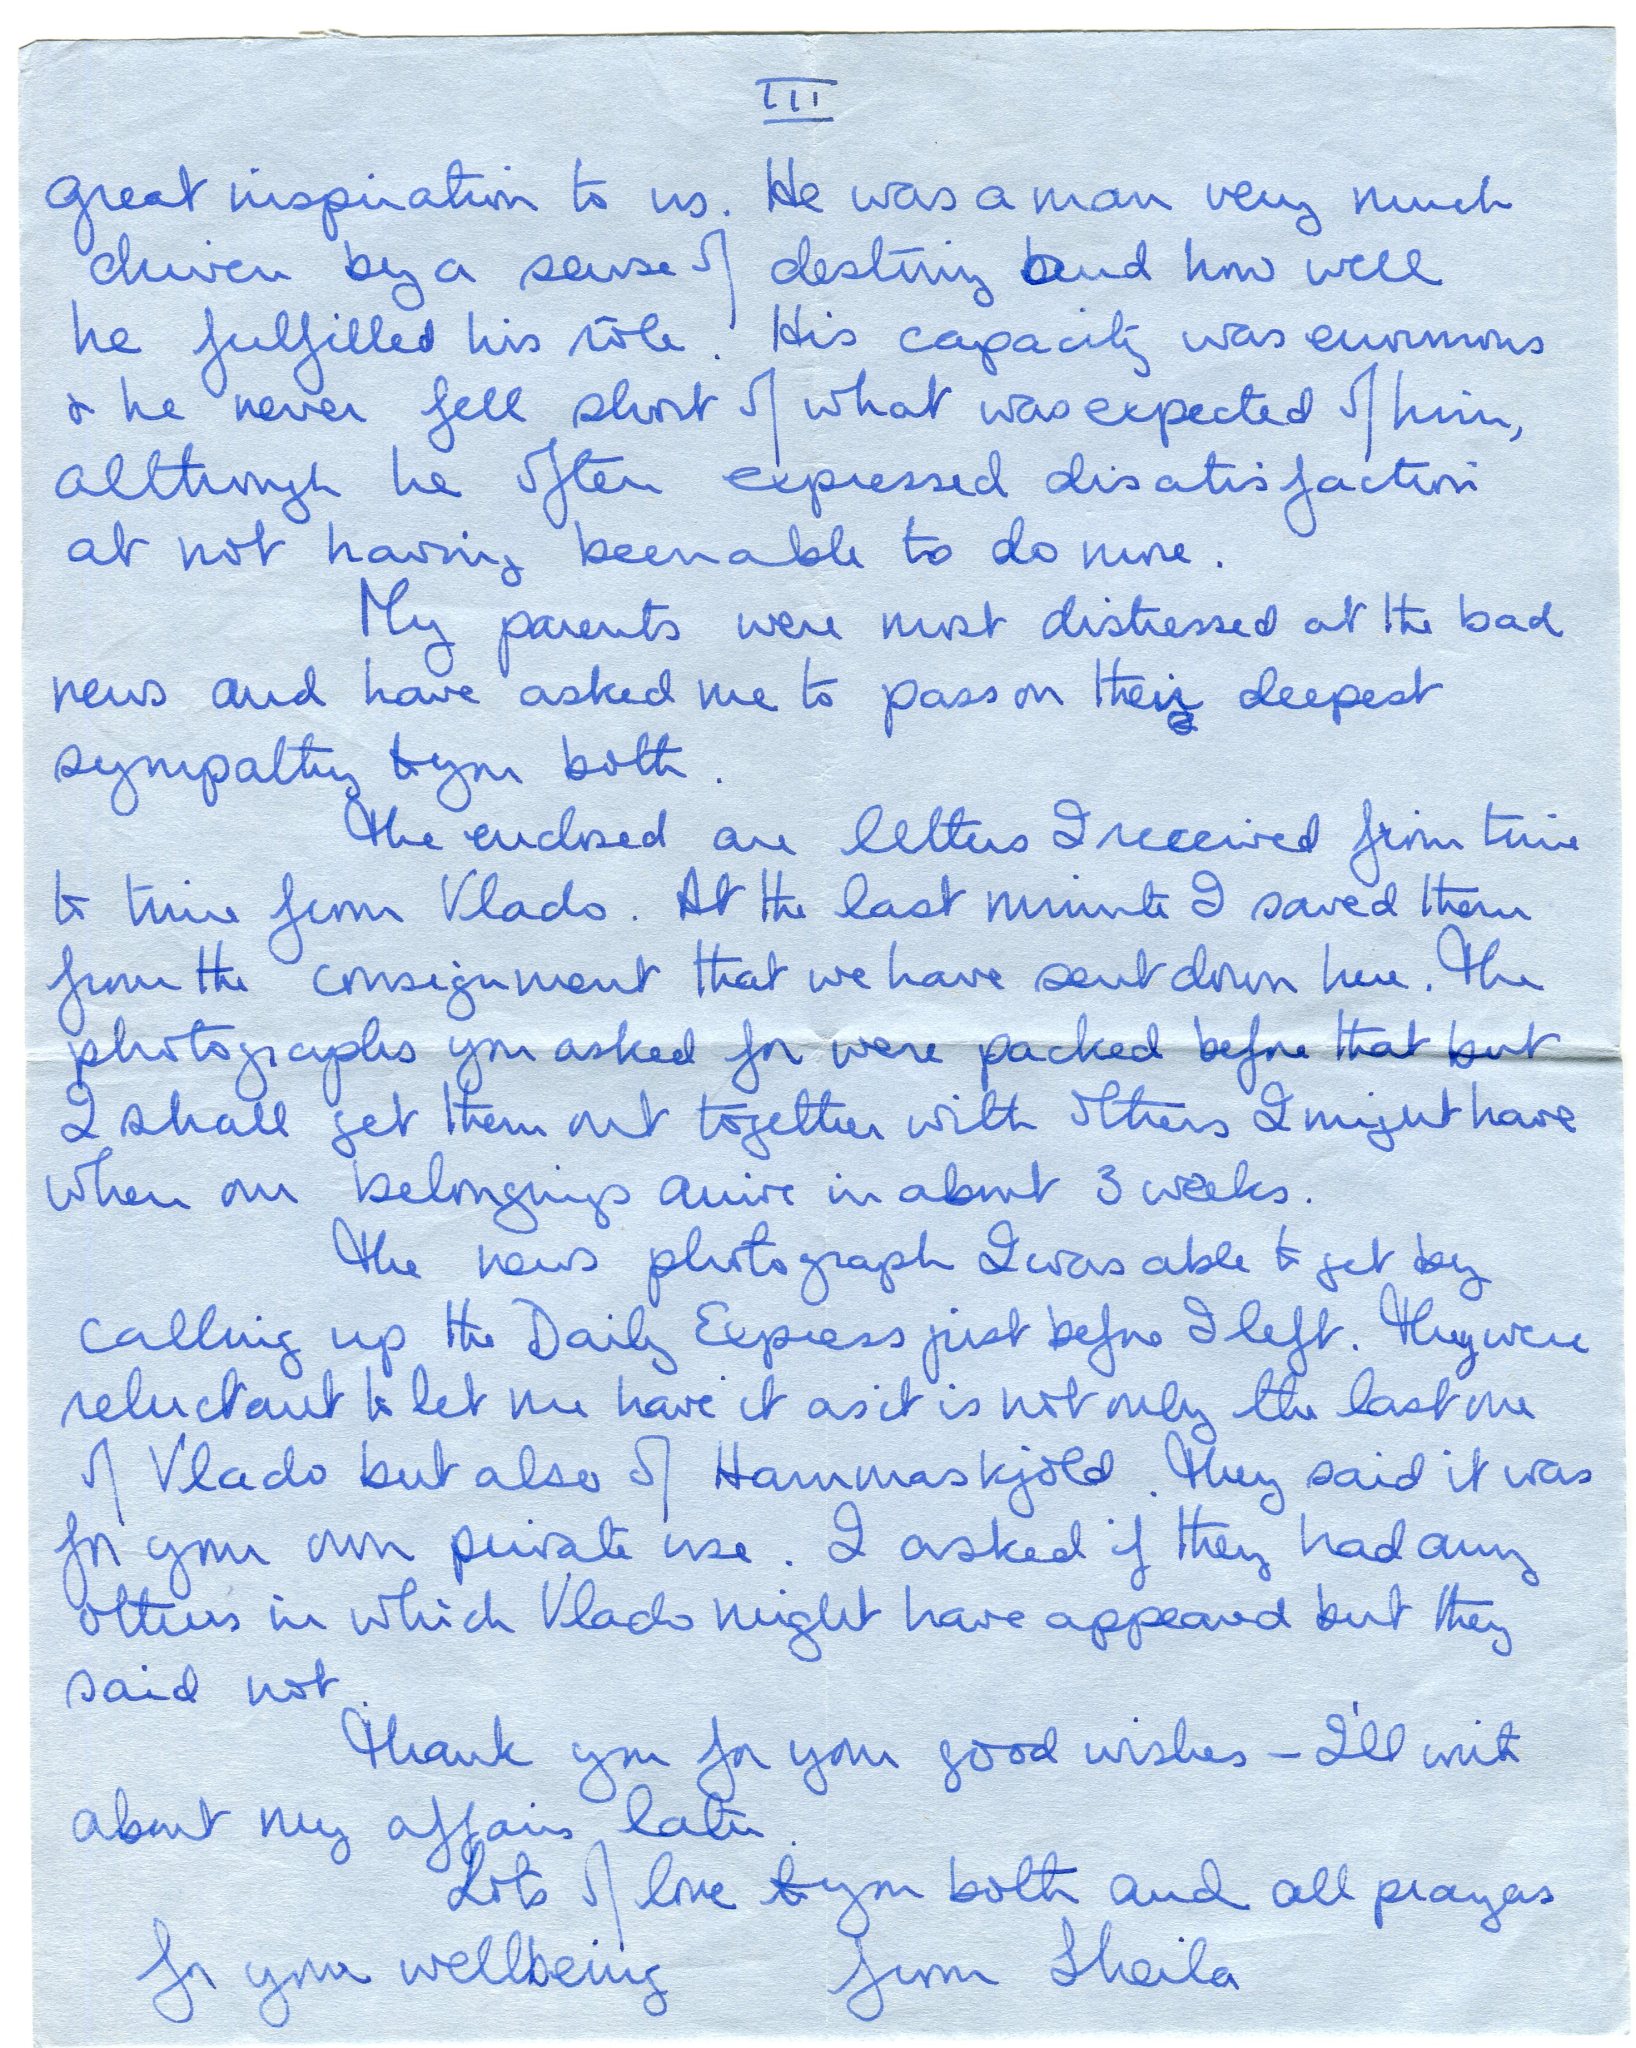 III
great inspiration to us. He was a man very much
driven by a sense of destiny and how well
he fulfilled his rôle. His capacity was enormous
& he never fell short of what was expected of him,
although he often expressed disatisfaction
at not having been able to do more.
My parents were most distressed at the bad
news and have asked me to pass on their deepest
sympathy to you both.
The enclosed are letters I received from time
to time from Vlado. At the last minute I saved them
from the consignment that we have sent down here. The
photographs you asked for were packed before that but
I shall get them out together with others I might have
when our belongings arrive in about 3 weeks.
The news photograph I was able to get by
calling up the Daily Express just before I left. They were
reluctant to let me have it as it is not only the last one
of Vlado but also of Hammaskjöld. They said it was
for your own private use. I asked if they had any
others in which Vlado might have appeared but they
said not.
Thank you for your good wishes – I'll write
about my affairs later.
Lots of love to you both and all prayers
for your wellbeing from Sheila